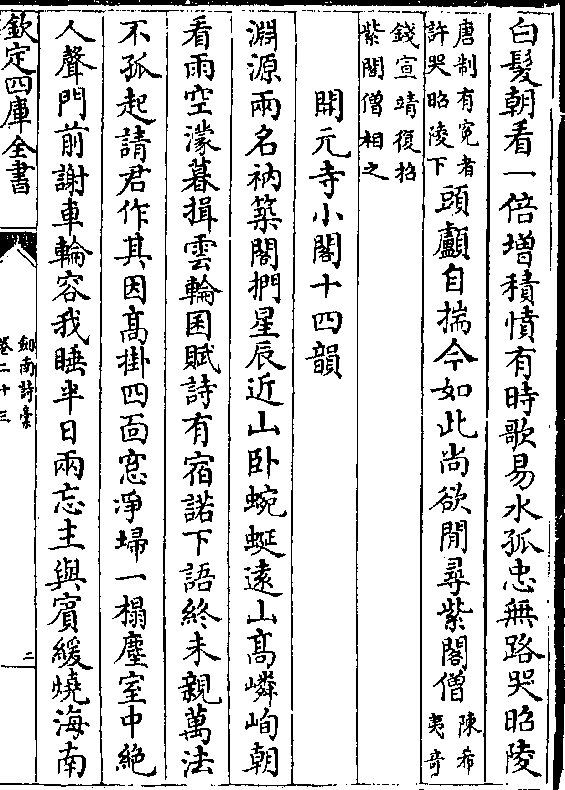 白髮朝看一倍增積憤有時歌易水孤忠無路哭昭陵
唐制有寃者
許哭昭陵下
頭顱自揣今如此尚欲閒尋紫閣僧
陳希
夷竒
錢宣靖復招
紫閣僧相之
開元寺小閣十四韻
淵源兩名衲築閣捫星辰近山卧蜿蜒遠山髙嶙峋朝
看雨空濛暮揖雲輪囷賦詩有宿諾下語終未親萬法
不孤起請君作其因髙掛四面窓淨埽一榻塵室中絶
人聲門前謝車輪容我睡半日兩忘主與賓緩燒海南
欽定四庫全書
劍南詩槀
卷二十三
二